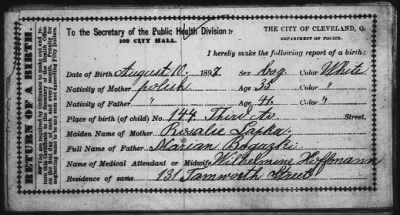 RETURN OF A BIRTH.
To the Secretary of the Public Health Division:
102 CITY HALL.
THE CITY OF CLEVELAND, O.
DEPARTMENT OF POLICE.
I hereby make the following report of a birth:
Date of Birth August 10. 1897 Sex boy Color White
Nativity of Mother polish Age 35 Color "
Nativity of Father " Age 46 Color "
Place of birth (of child) No. 144 Third str Street,
Maiden Name of Mother Rosalie Lapka
Full Name of Father Marian Boguzki
Name of Medical Attendant or Midwife Wilhelmine Hoffmann
Residence of same 131 Tamworth Street